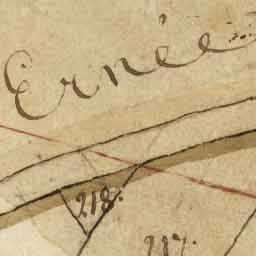 Ernée
218.
217.